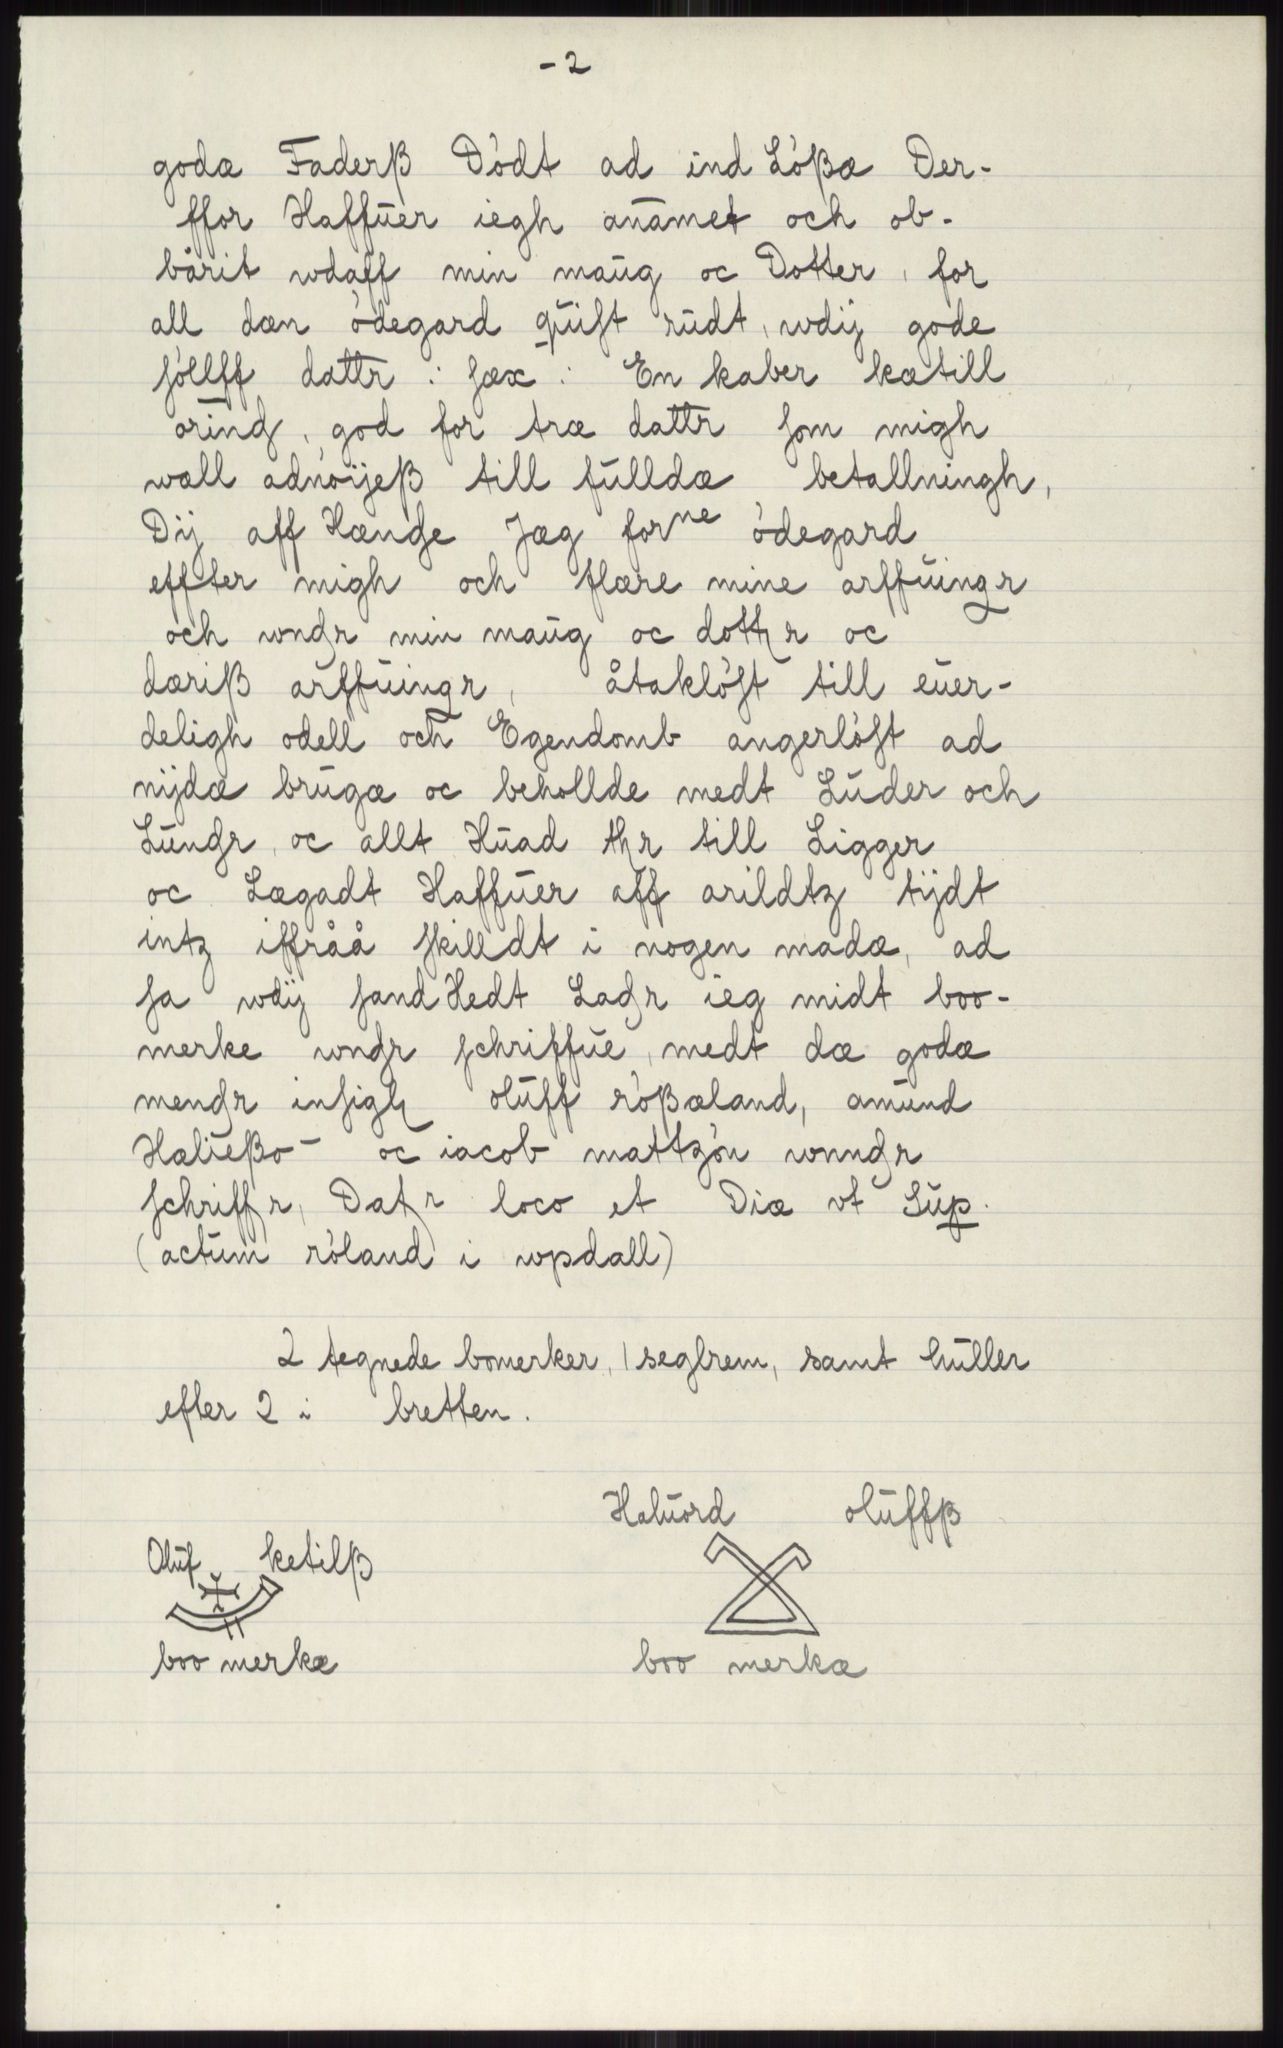 - 2
godæ Faderß Dödt ad ind Lößæ Der-
ffor Haffuer iegh anamet och ob-
bårit wdaff min maug oc Dotter, for
all dæn ödegard quist rudt, wdij gode
söllff dattr : sæx : En kaber kætill
oring, god for træ dattr som migh
wæll adnöijeß till fulldæ betallningh,
Dij aff Hænde Jæg forne ödegard
effter migh och flære mine arffuingr
och wndr min maug oc dotthr oc
dæriß arffuingr, åtaklöst till euer-
deligh odell och Egendomb angerlöst ad
nijdæ brugæ oc behollde medt Luder och
Lundr, oc allt Huad thr till Ligger
oc Lægadt Haffuer aff arildtz tijdt
intz iffråå skilldt i nogen madæ, ad
sa wdij sandHedt Ladr ieg midt boo-
merke wndr schriffue, medt dæ godæ
mendr insigh oluff rößæland, amund
Hæließo- oc iacob mattzön wnndr
schriffr, Datr loco et Diæ vt Sup.
(actum röland i wpdall)
2 tegnede bomerker, 1 seglrem, samt huller
efter 2 i bretten.
Haluord oluffß
Oluf ketilß
boo merkæ boo merkæ